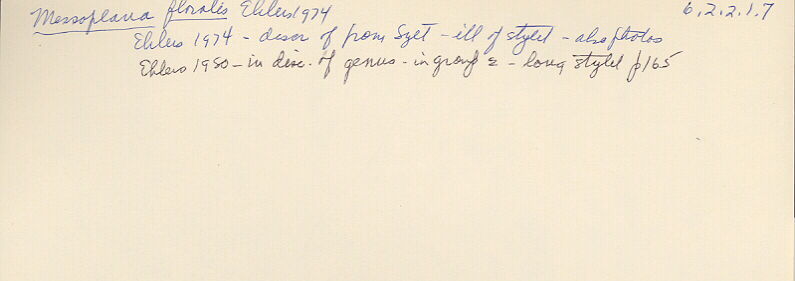 Messoplana floralis Ehlers 1974 6.2.2.1.7
Ehlers 1974 - descr of from Sylt - ill of stylet - also photos
Ehlers 1980 - in disc. of genus - in group 2 - long stylet p165